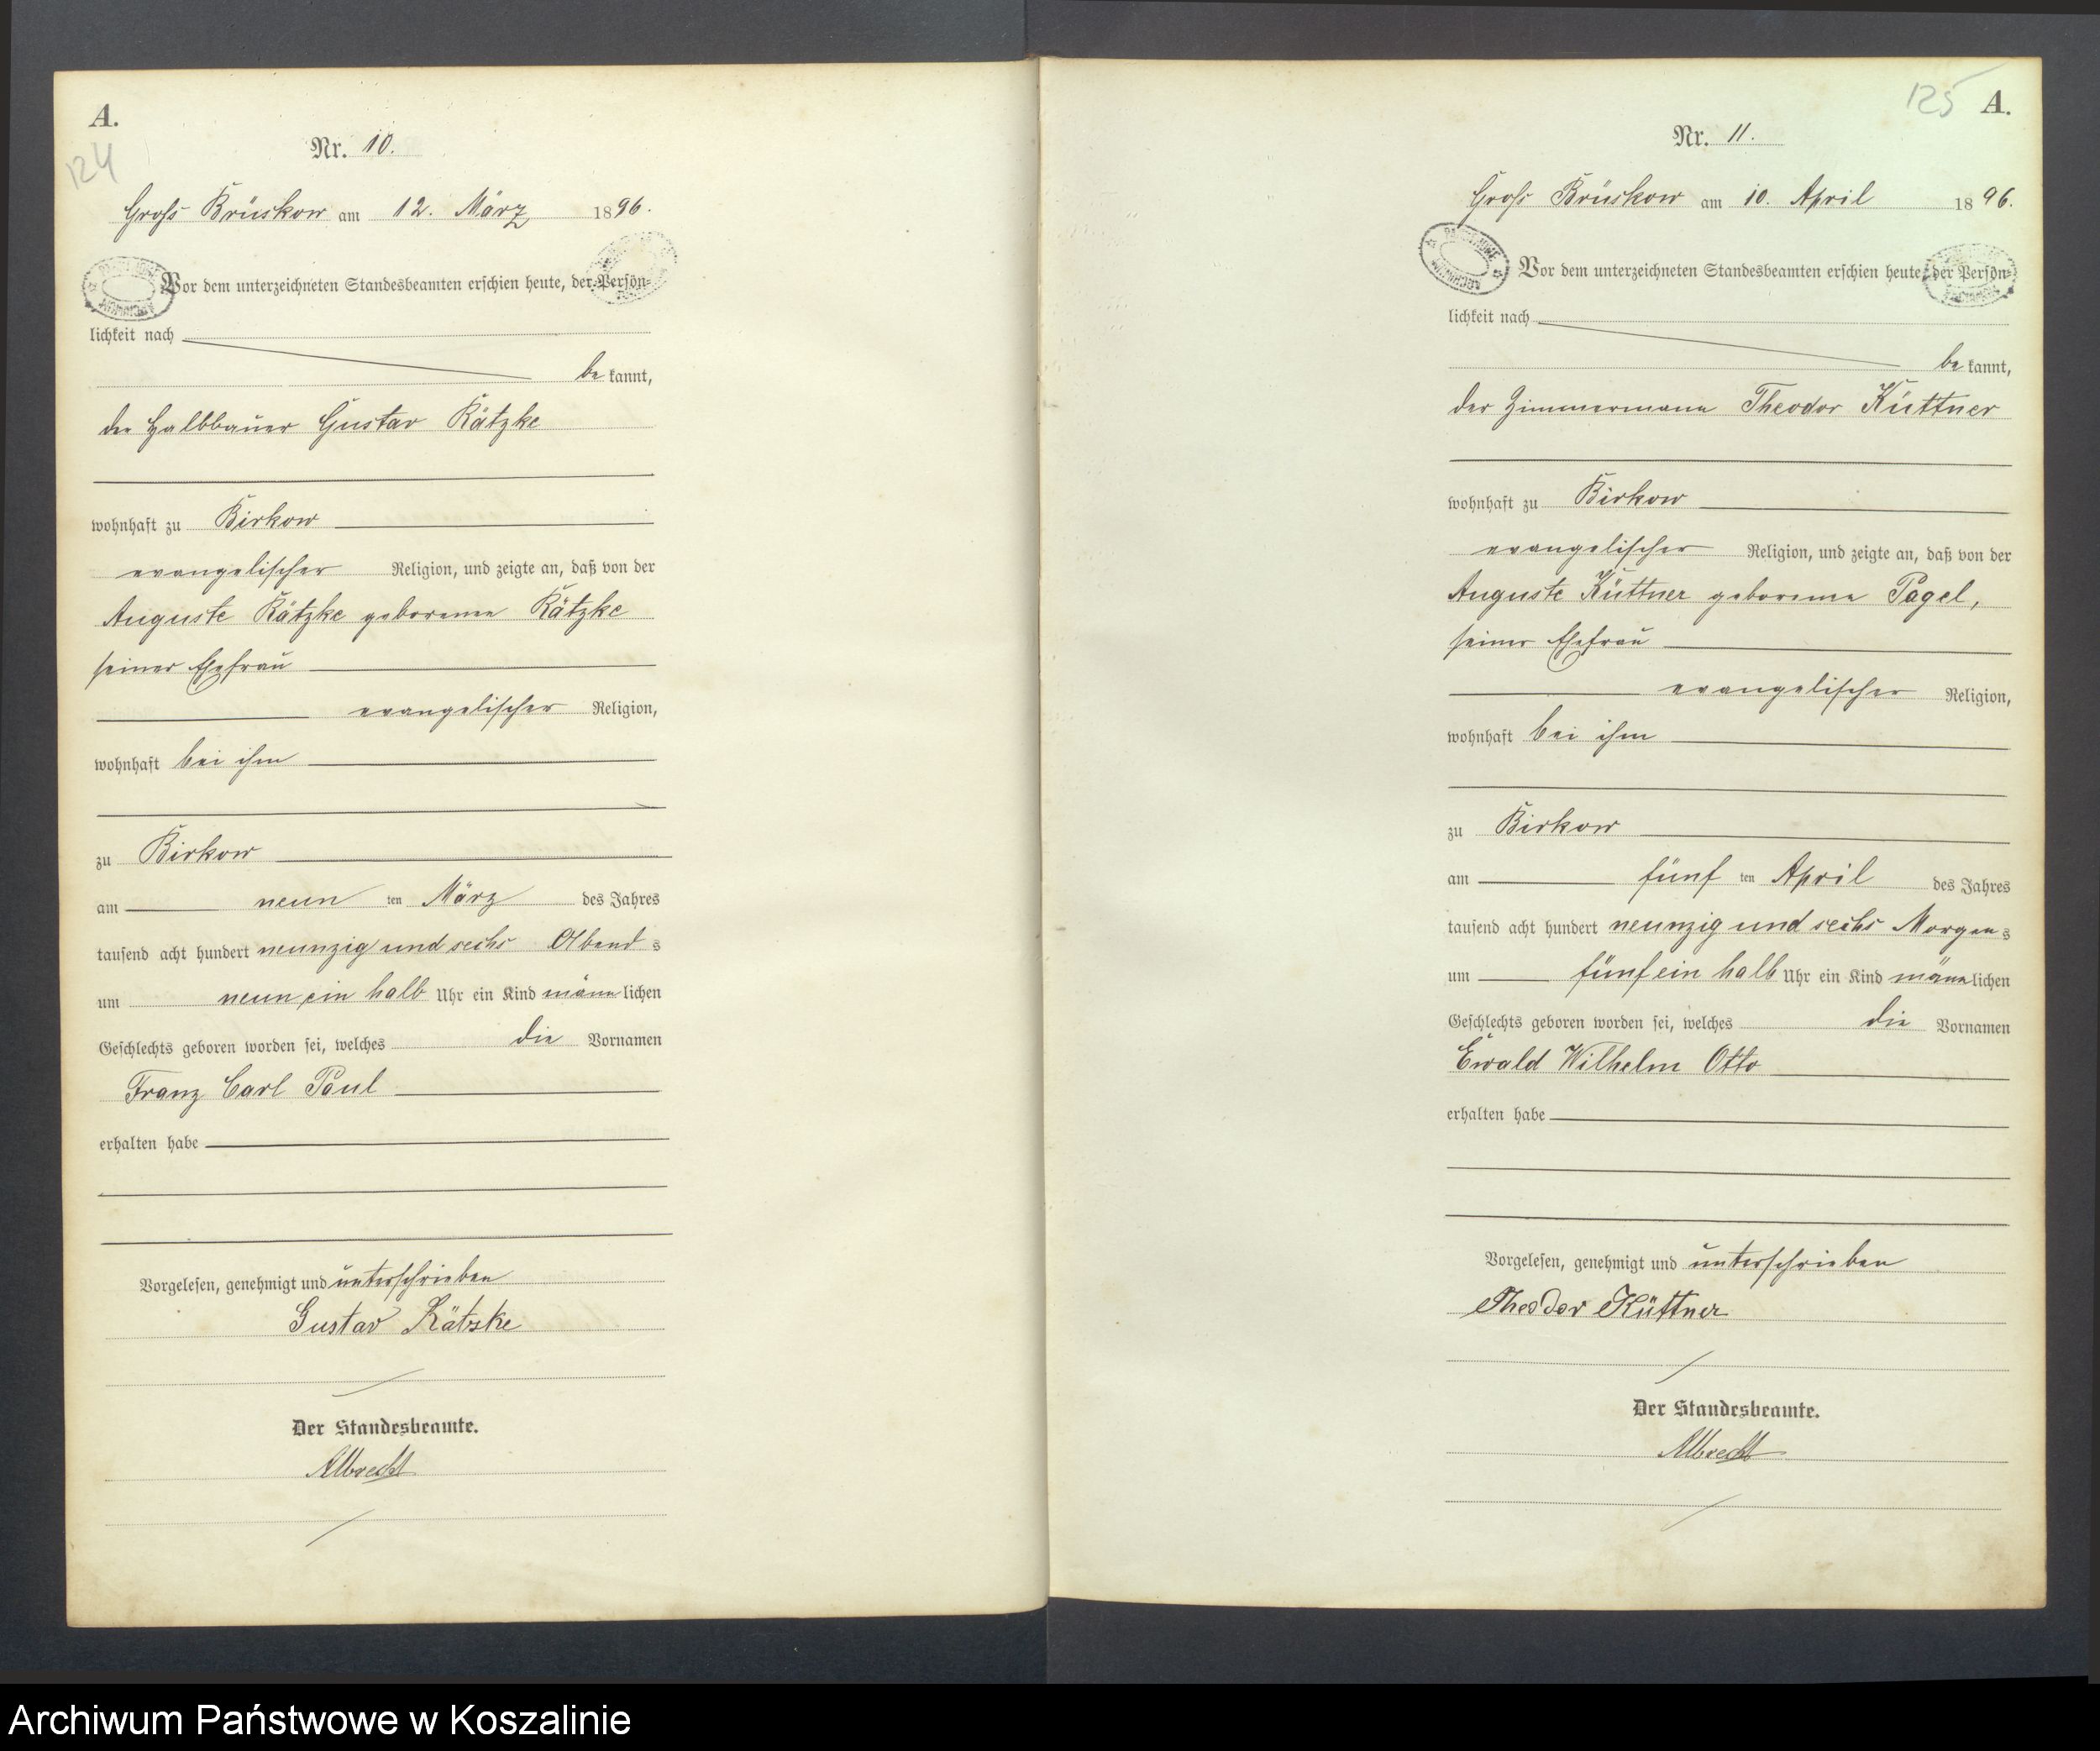 A.
124
Nr. 10.
Groß Brüskow am 12. März 1896.
Vor dem unterzeichneten Standesbeamten erschien heute, der Persön-
lichkeit nach
be kannt,
der Halbbauer Gustav Kätzke
wohnhaft zu Birkow
evangelischer Religion, und zeigte an, daß von der
Auguste Kätzke geborene Kätzke
seiner Ehefrau
evangelischer Religion,
wohnhaft bei ihm
zu Birkow
am neun ten März des Jahres
tausend acht hundert neunzig und sechs Abend s
um neun ein halb Uhr ein Kind männlichen
Geschlechts geboren worden sei, welches die Vornamen
Franz Carl Paul
erhalten habe
Vorgelesen, genehmigt und unterschrieben
Gustav Kätzke
Der Standesbeamte.
Albrecht
125 A.
Nr. 11.
Groß Brüskow am 10. April 1896.
Vor dem unterzeichneten Standesbeamten erschien heute, der Persön-
lichkeit nach
be kannt,
der Zimmermann Theodor Küttner
wohnhaft zu Birkow
evangelischer Religion, und zeigte an, daß von der
Auguste Küttner geborene Pagel,
seiner Ehefrau
evangelischer Religion,
wohnhaft bei ihm
zu Birkow
am fünf ten April des Jahres
tausend acht hundert neunzig und sechs Morgen s
um fünf ein halb Uhr ein Kind männlichen
Geschlechts geboren worden sei, welches die Vornamen
Ewald Wilhelm Otto
erhalten habe
Vorgelesen, genehmigt und unterschrieben
Theodor Küttner
Der Standesbeamte.
Albrecht
Archiwum Państwowe w Koszalinie